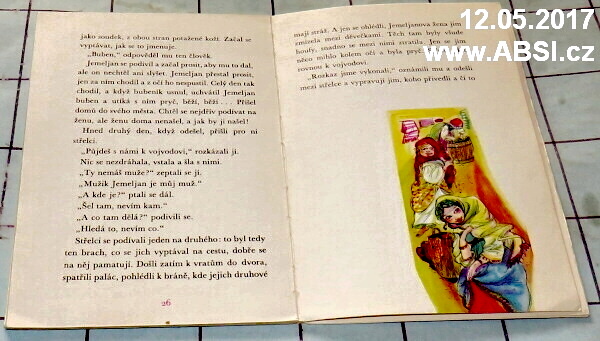 jako soudek, z obou stran potažené koží. Začal se
vyptávat, jak se to jmenuje.
„Buben,“ odpověděl mu ten člověk.
Jemeljan se podivil a začal prosit, aby mu to dal,
ale on nechtěl ani slyšet. Jemeljan přestal prosit,
jen za ním chodil a z očí ho nespustil. Celý den tak
chodil, a když bubeník usnul, uchvátil Jemeljan
buben a utíká s ním pryč, běží, běží... Přišel
domů do svého města. Chtěl se nejdřív podívat na
ženu, ale ženu doma nenašel, a jak by ji našel!
Hned druhý den, když odešel, přišli pro ni
střelci.
„Půjdeš s námi k vojvodovi,“ rozkázali jí.
Nic se nezdráhala, vstala a šla s nimi.
„Ty nemáš muže?“ zeptali se jí.
„Mužik Jemeljan je můj muž.“
„A kde je?“ ptali se dál.
„Šel tam, nevím kam.“
„A co tam dělá?“ podivili se.
„Hledá to, nevím co.“
Střelci se podívali jeden na druhého: to byl tedy
ten brach, co se jich vyptával na cestu, dobře se
na něj pamatují. Došli zatím k vratům do dvora,
spatřili palác, pohlédli k bráně, kde jejich druhové
26
mají stráž. A jen se ohlédli, Jemeljanova žena jim
zmizela mezi děvečkami. Těch tam byly všude
houfy, snadno se mezi nimi ztratila. Jen se jim
něco mihlo kolem očí a byla pryč.
rovnou k vojvodovi.
„Rozkaz jsme vykonali,“ oznámili mu a odešli
mezi střelce a vypravují jim, koho přivedli a či to
12.05.2017
www.ABSI.cz